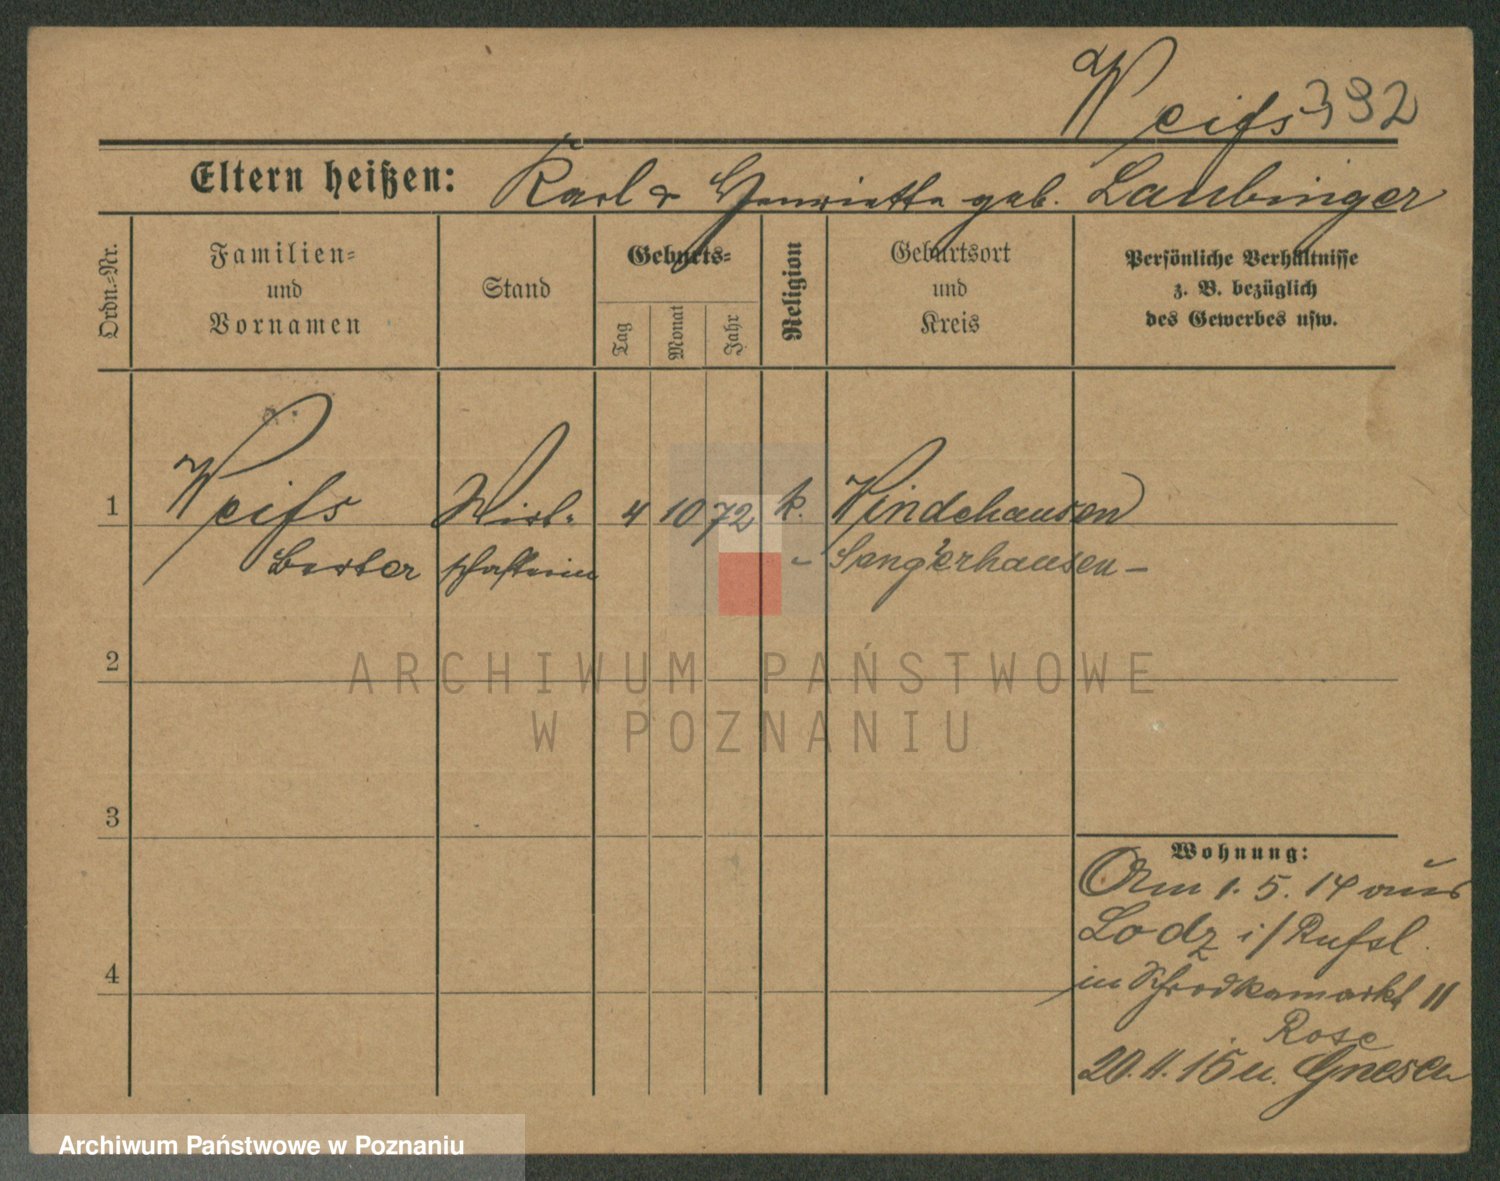 Weiſs 392
Eltern heißen: Karl & Henriette geb. Laubinger
Ordn.-Nr.
Familien- und Vornamen
Stand
Geburts-
Tag
Monat
Jahr
Religion
Geburtsort und Kreis
Persönliche Verhältnisse z. B. bezüglich des Gewerbes usw.
1 Weiſs Wirt- 4 10 72 k. Windehausen
schafterin - Sangerhausen -
2
ARCHIWUM PAŃSTWOWE
W POZNANIU
3
Wohnung:
Am 1. 5. 14 aus
Lodz i/Ruſsl.
4
in Schrodkamarkt 11
Rose
20.11.15 u. Gnesen
Archiwum Państwowe w Poznaniu